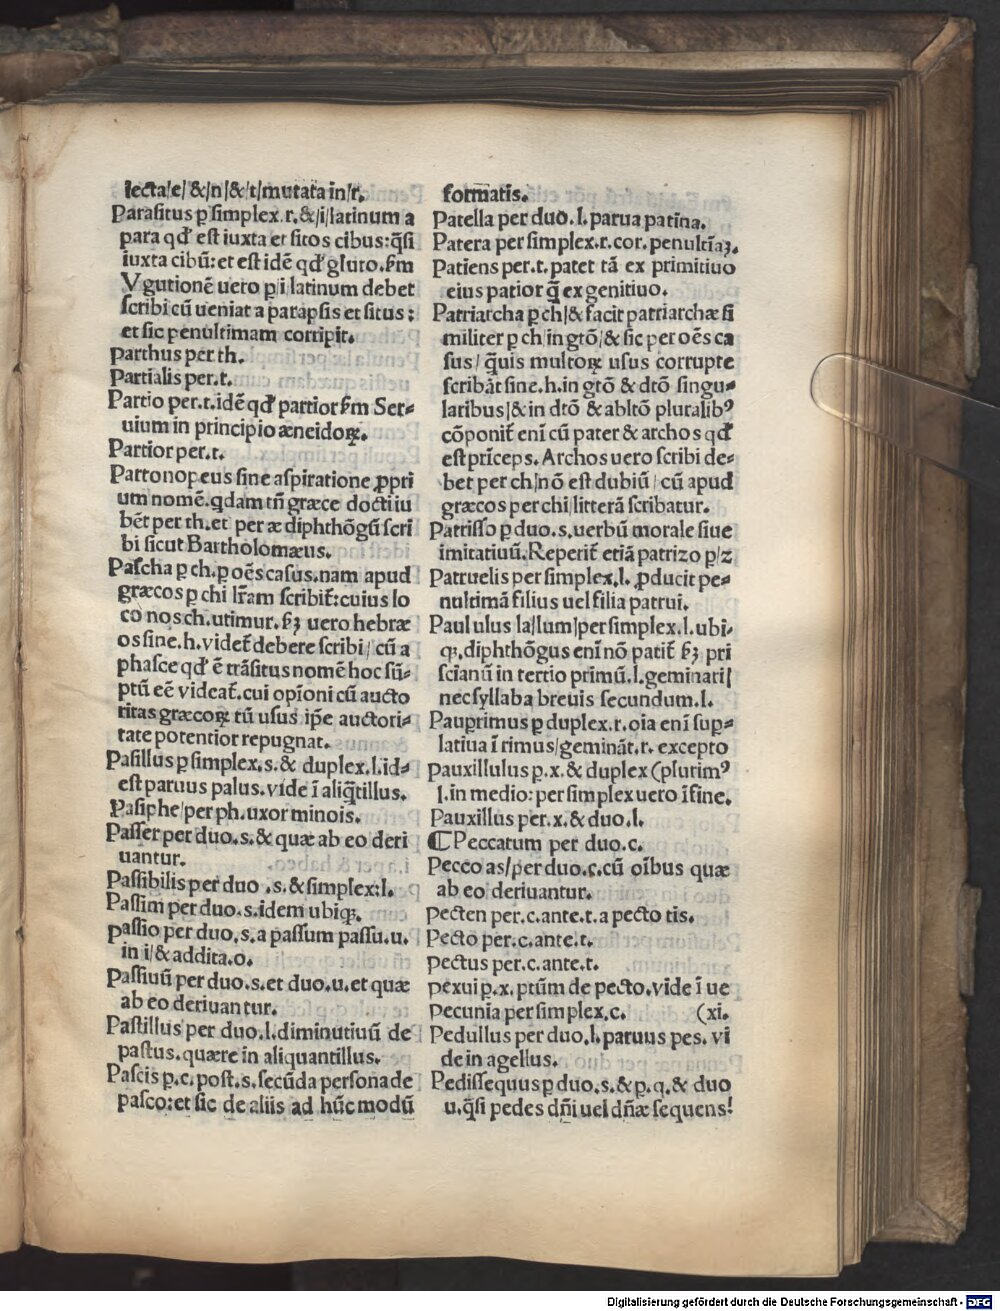 lecta/e/&/n/&/t/mutata in/r.
Parasitus ꝑ simplex.r.&/i/latinum a
para qď est iuxta et sitos cibus:q̄si
iuxta cibū:et est idē qď gluto.ẜm
Vgutionē uero ꝑ/i latinum debet
scribi cū ueniat a parapsis et situs:
et sic penultimam corripit.
Parthus per th.
Partialis per.t.
Partio per.t.idē qď partior ẜm Ser⸗
uium in principio æneidoꝝ.
Partior per.t.
Partonopeus sine aspiratione ꝓpri
um nomē.qdam tñ græce docti iu
bēt per th.et per æ diphthōgū scri
bi sicut Bartholomæus.
Pascha ꝑ ch.ꝑ oēs casus.nam apud
græcos ꝑ chi lr̄am scribit̄:cuius lo
co nos ch.utimur.ẜꝫ uero hebræ
os sine.h.videt̄ debere scribi/cū a
phasce qď ē trāsitus nomē hoc sū⸗
ptū eē videat̄.cui opīoni cū aucto
ritas græcoꝝ tū usus ip̄e auctori⸗
tate potentior repugnat.
Pasillus ꝑ simplex.s.& duplex.l.id⸗
est paruus palus.vide ī aliq̄tillus.
Pasiphe/per ph.uxor minois.
Passer per duo.s.& quæ ab eo deri
uantur.
Passibilis per duo .s.& simplex:l.
Passim per duo.s.idem ubiqꝫ.
Passio per duo.s.a passum passu.u.
in i/& addita.o.
Passiuū per duo.s.et duo.u.et quæ
ab eo deriuantur.
Pastillus per duo.l.diminutiuū de
pastus.quære in aliquantillus.
Pascis ꝑ.c.post.s.secūda persona de
pasco:et sic de aliis ad hūc modū
formatis.
Patella per duo.l.parua patīna.
Patera per simplex.r.cor.penultīaꝫ.
Patiens per.t.patet tā ex primitiuo
eius patior q̄ ex genitiuo.
Patriarcha ꝑ ch/& facit patriarchæ si
militer ꝑ ch/in gtō/& sic per oēs ca
sus/q̄uis multoꝝ usus corrupte
scribāt sine.h.in gtō & dtō singu⸗
laribus/& in dtō & abltō pluralibꝰ
cōponit̄ enī cū pater & archos qď
est prīceps.Archos uero scribi de⸗
bet per ch/nō est dubiū/cū apud
græcos per chi/litterā scribatur.
Patrisso ꝑ duo.s.uerbū morale siue
imitatiuū.Reperit̄ etiā patrizo ꝑ/z
Patruelis per simplex.l.ꝓducit pe⸗
nultimā filius uel filia patrui.
Paululus la/lum/per simplex.l.ubi⸗
qꝫ.diphthōgus enī nō patit̄ ẜꝫ pri
scianū in tertio primū.l.geminari/
nec syllaba breuis secundum.l.
Pauprimus ꝑ duplex.r.oīa enī sup⸗
latiua ī rimus/gemināt.r.excepto
Pauxillulus ꝑ.x.& duplex (plurimꝰ
l.in medio:per simplex uero ī fine.
Pauxillus per.x.& duo.l.
⸿ Peccatum per duo.c.
Pecco as/per duo.c.cū oībus quæ
ab eo deriuantur.
Pecten per.c.ante.t.a pecto tis.
Pecto per.c.ante.t.
Pectus per.c.ante.t.
Pexui ꝑ.x.ptūm de pecto.vide ī ue
Pecunia per simplex.c. (xi.
Pedullus per duo.l.paruus pes.vi
de in agellus.
Pedissequus ꝑ duo.s.& ꝑ.q.& duo
u.q̄si pedes dñi uel dñæ sequens/
Digitalisierung gefördert durch die Deutsche Forschungsgemeinschaft - DFG